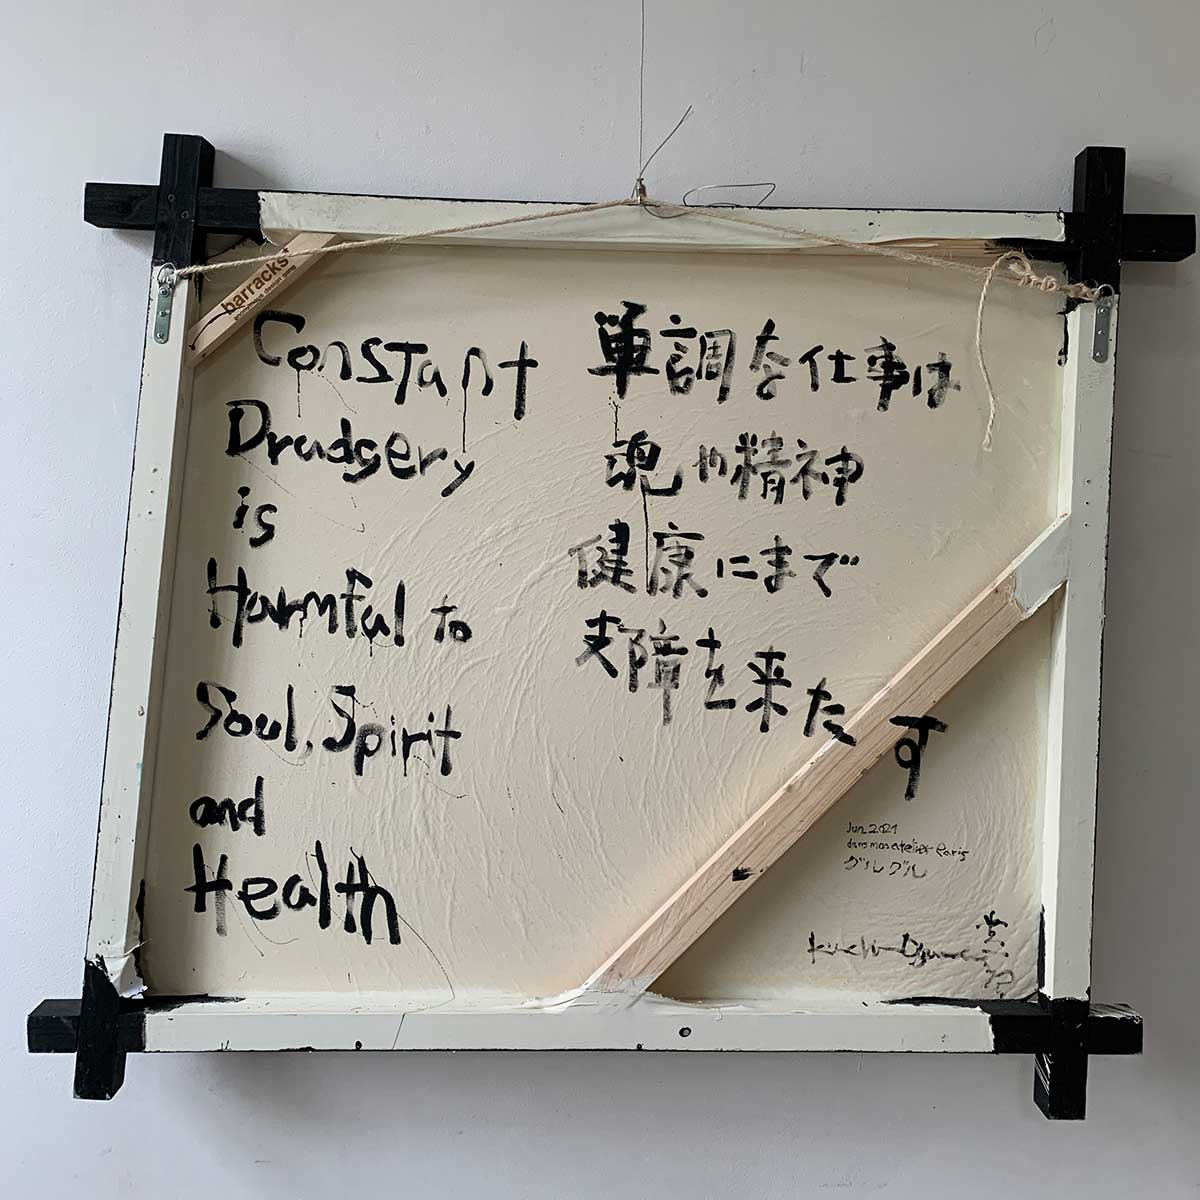 barracks
Constant
Drudgery
is
Harmful to
Soul, Spirit
and
Health
単調な仕事は
魂や精神
健康にまで
支障を来たす
Jun 2021
dans mon atelier Paris
グルグル